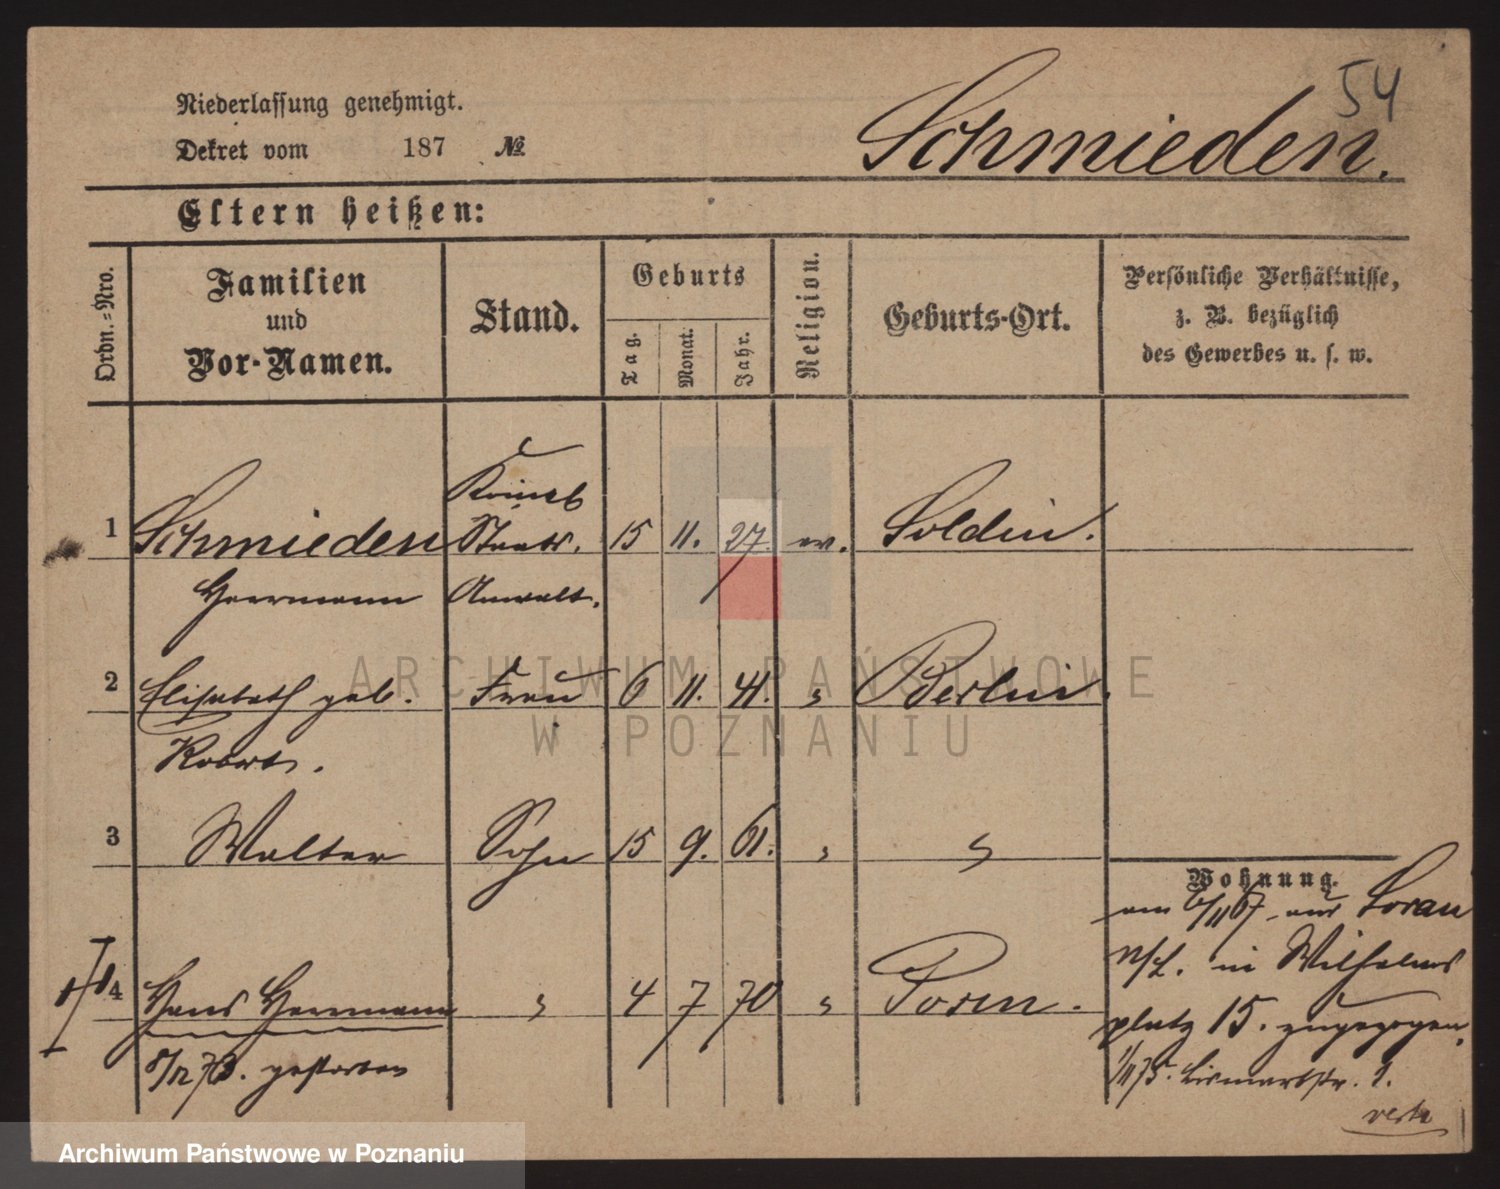 54
Niederlassung genehmigt.
Dekret vom 187 №
Schmieden.
Eltern heißen:
Ordn.=Nro.
Familien
und
Vor-Namen.
Stand.
Geburts
Tag.
Monat.
Jahr.
Religion.
Geburts-Ort.
Persönliche Verhältnisse,
z. B. bezüglich
des Gewerbes u. s. w.
1 Schmieden Staats. 15 11. 27. ev. Soldin.
Herrmann Anwalt.
2 Elisabeth geb. Frau 6 11. 41. " Berlin.
Robert.
3 Walter Sohn 15 9. 61. " "
Wohnung.
am 6/11 67 aus Sorau
N/L. in Wilhelms
4 Hans Herrmann " 4 7 70 " Posen.
platz 15. zugezogen.
8/12 73. gestorben
1/11 75. Bismarckstr. 1.
verte
ARCHIWUM PAŃSTWOWE
W POZNANIU
Archiwum Państwowe w Poznaniu